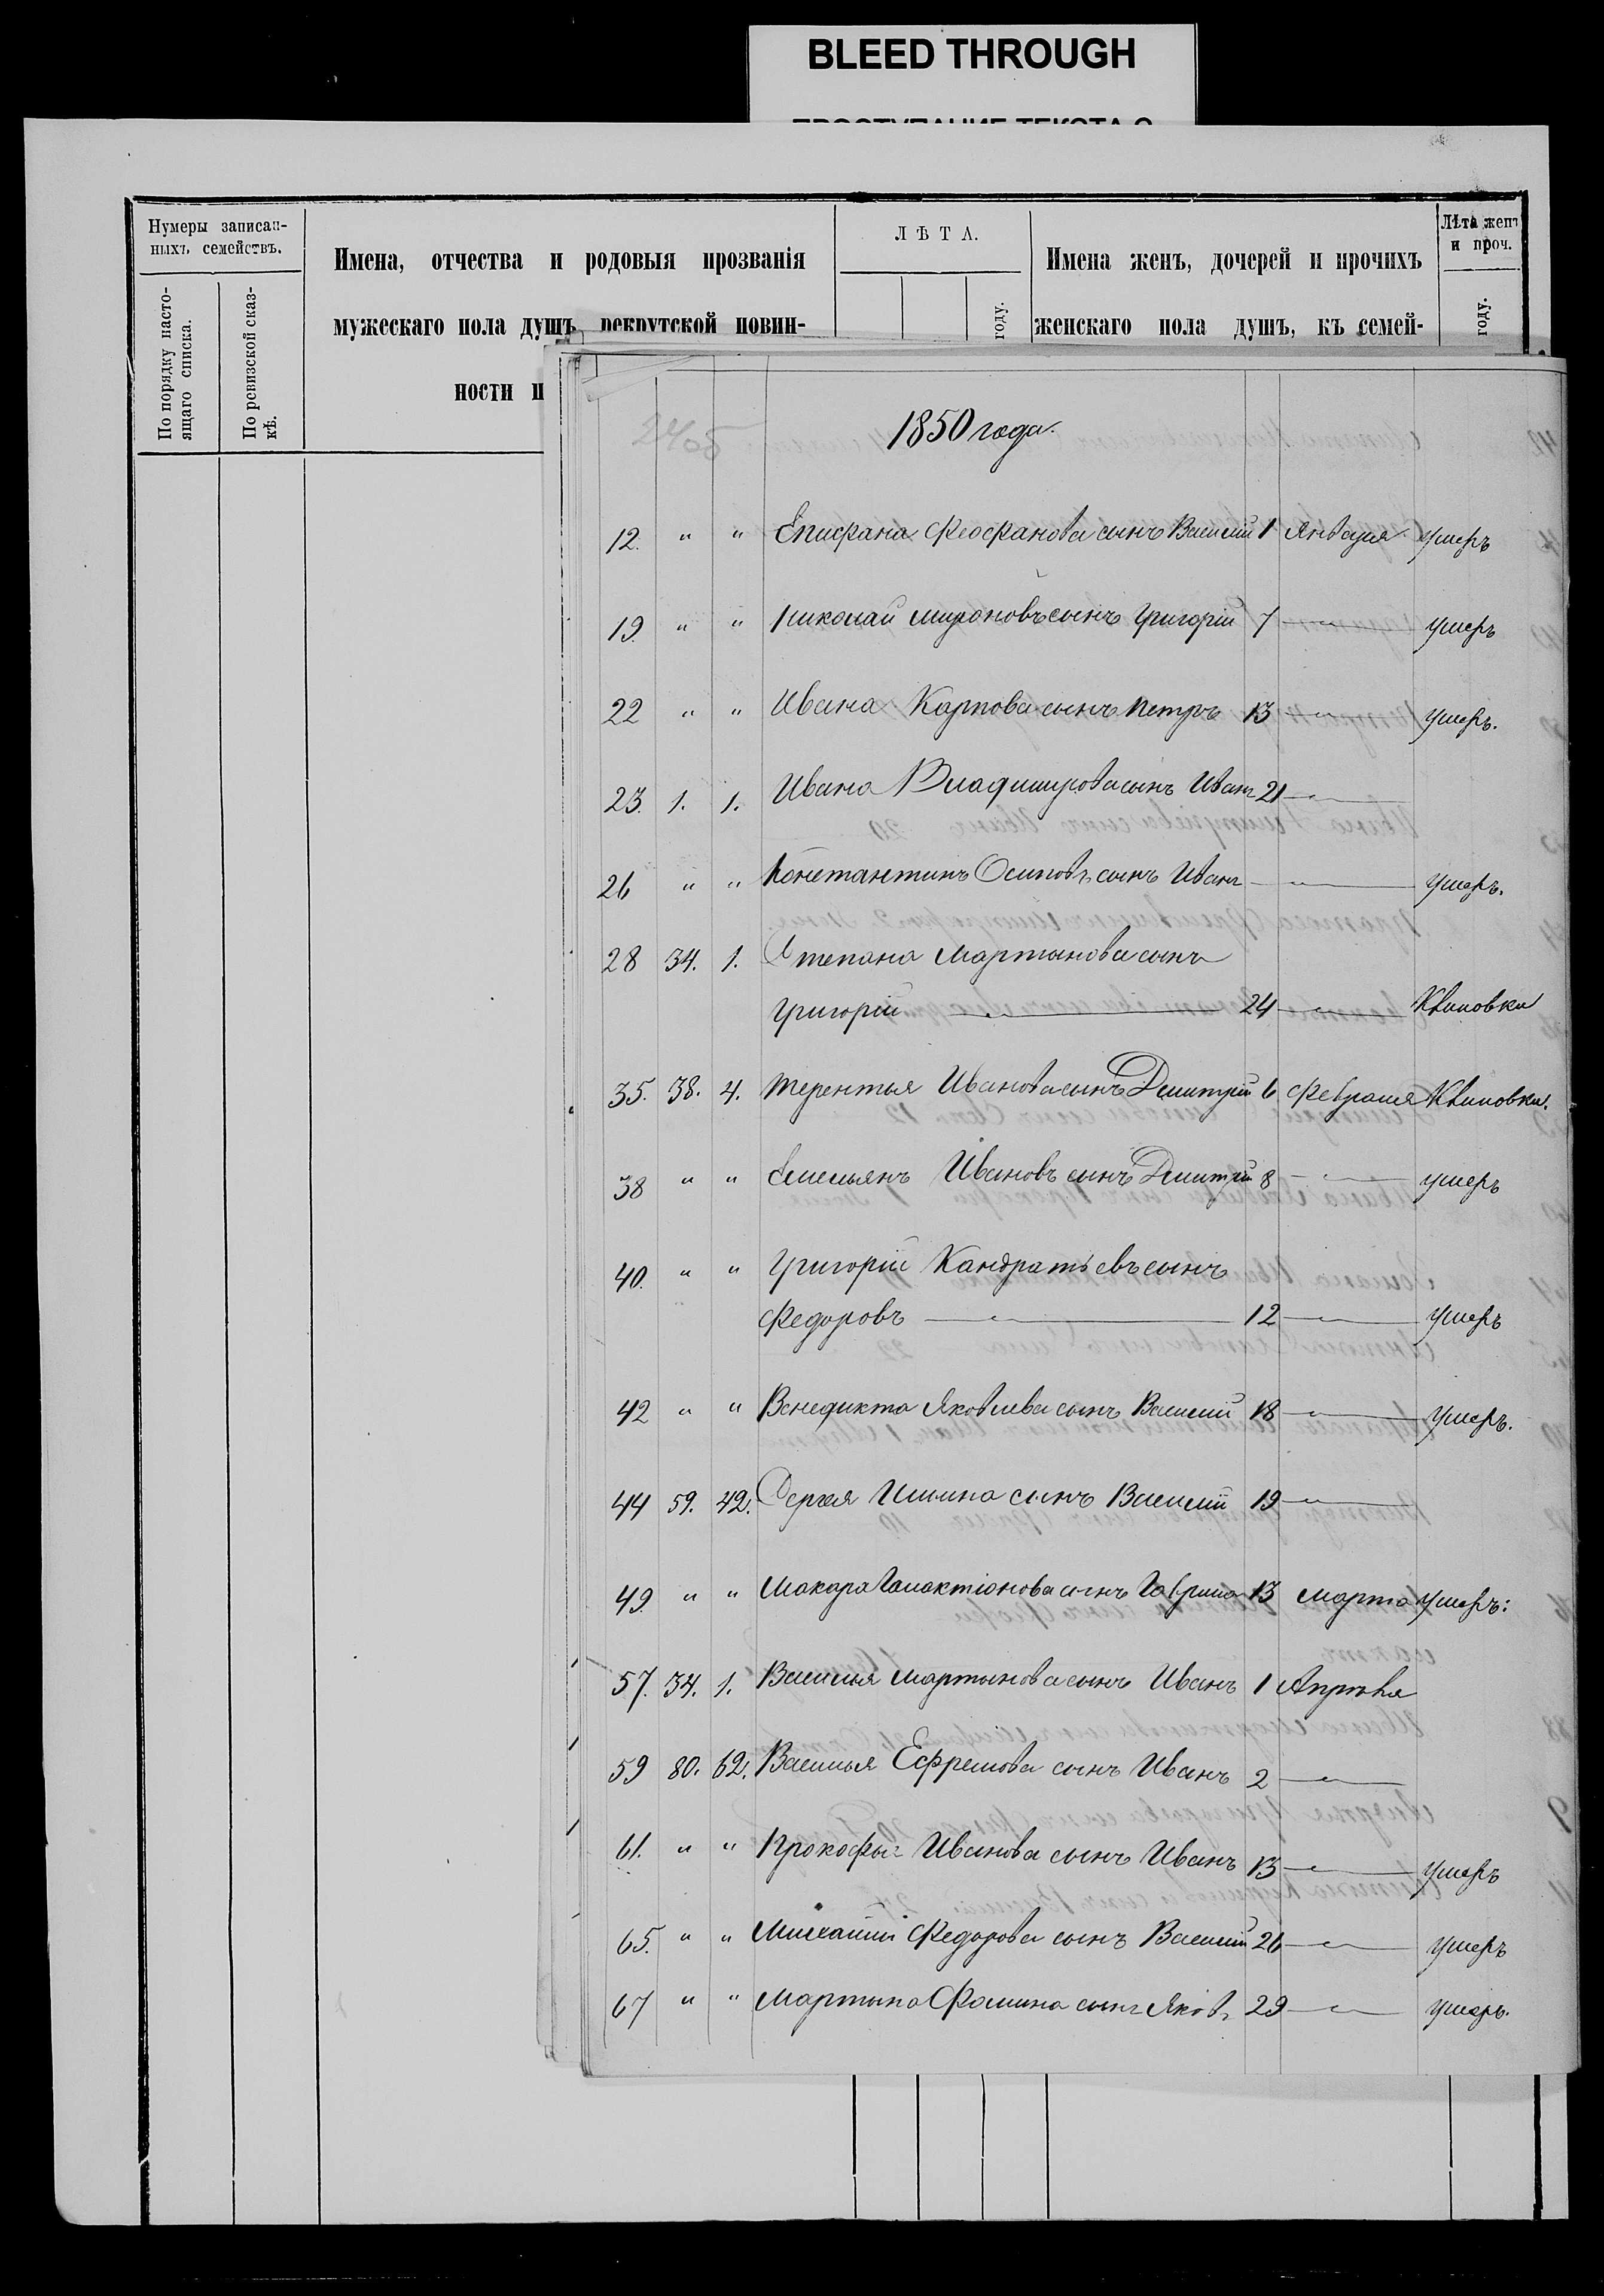 BLEED THROUGH
Нумеры записан-
ныхъ семействъ.
По порядку насто-
ящаго списка.
По ревизской сказ-
кѣ.
Имена, отчества и родовыя прозванія
мужескаго пола душъ рекрутской повин-
ности
ЛѢТА.
году.
Имена женъ, дочерей и прочихъ
женскаго пола душъ, къ семей-
Лѣта женъ
и проч.
году.
1850 года.
12. " " Епифана Феофанова сынъ Василій 1 Января умеръ
19. " " Николай Мироновъ сынъ Григорій 7 — умеръ
22 " " Ивана Карпова сынъ Петръ 13 — умеръ.
23. 1. 1. Ивана Владимирова сынъ Иванъ 21 —
26 " " Константинъ Осиповъ сынъ Иванъ — умеръ.
28 34. 1. Степана Мартынова сынъ
Григорій — 24 — Клиновки
35. 38. 4. Терентья Иванова сынъ Дмитрій 6 Февраля Клиновки.
38 " " Емельянъ Ивановъ сынъ Дмитрій 8 — умеръ
40. " " Григорій Кандратьевъ сынъ
Федоровъ — 12 — умеръ
42 " " Венедикта Яковлева сынъ Василій 18 — умеръ.
44 59. 42. Сергея Ильина сынъ Василій 19 —
49. " " Макара Галактіонова сынъ Гаврила 13 марта умеръ:
57. 34. 1. Василья Мартынова сынъ Иванъ 1 Апрѣля
59 80. 62. Василья Ефремова сынъ Иванъ 2 —
61. " " Прокофья Иванова сынъ Иванъ 13 — умеръ
65. " " Михайлы Федорова сынъ Василій 26 — умеръ
67 " " Мартына Фомина сынъ Яковъ 29 — умеръ.